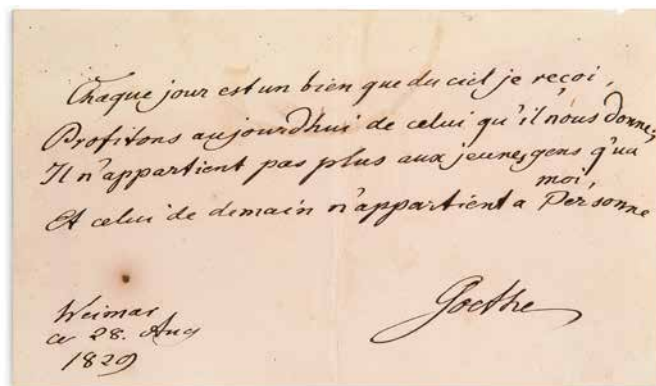 Chaque jour est un bien que du ciel je reçoi,
Profitons aujourdhui de celui qu'il nous donne;
Il n'appartient pas plus aux jeunes gens qu'a
moi,
Et celui de demain n'appartient a Personne
Weimar
ce 28. Aug
1829
Goethe